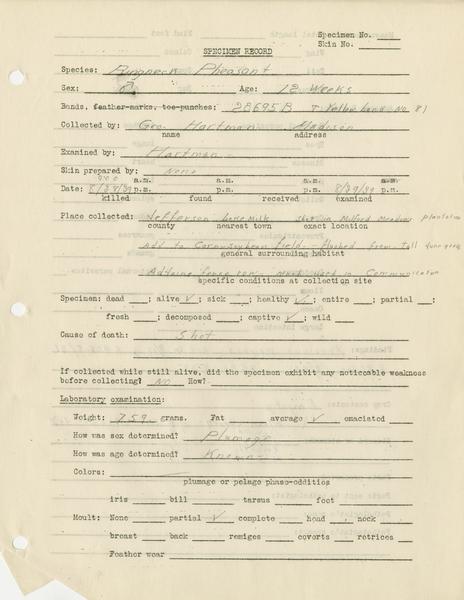 Specimen No.
Skin No.
SPECIMEN RECORD
Species: Ringneck Pheasant
Sex: Age: 12 Weeks
Bands, feather-marks, toe-punches: 28695B T Kelber band No. 81
Collected by: Geo. Hartman Madison
name address
Examined by: Hartman
Skin prepared by: None
a.m. a.m. a.m. a.m.
Date: p.m. p.m. p.m. 8/29/39 p.m.
killed found received examined
Place collected: Jefferson Lake Mills shot in Milford Meadows plantation
county nearest town exact location
Add to Corn-soybean field - flushed from tall
general surrounding habitat
Adjoining fence row
specific conditions at collection site
Specimen: dead ; alive ✓; sick ; healthy ✓; entire ; partial ;
fresh ; decomposed ; captive ✓; wild
Cause of death: Shot
If collected while still alive, did the specimen exhibit any noticeable weakness
before collecting? No How?
Laboratory examination:
Weight: 759 grams. Fat average ✓ emaciated
How was sex determined? Plumage
How was age determined? Known
Colors:
plumage or pelage phase-oddities
iris bill tarsus foot
Moult: None partial ✓ complete head neck
breast back remiges coverts retrices
Feather wear